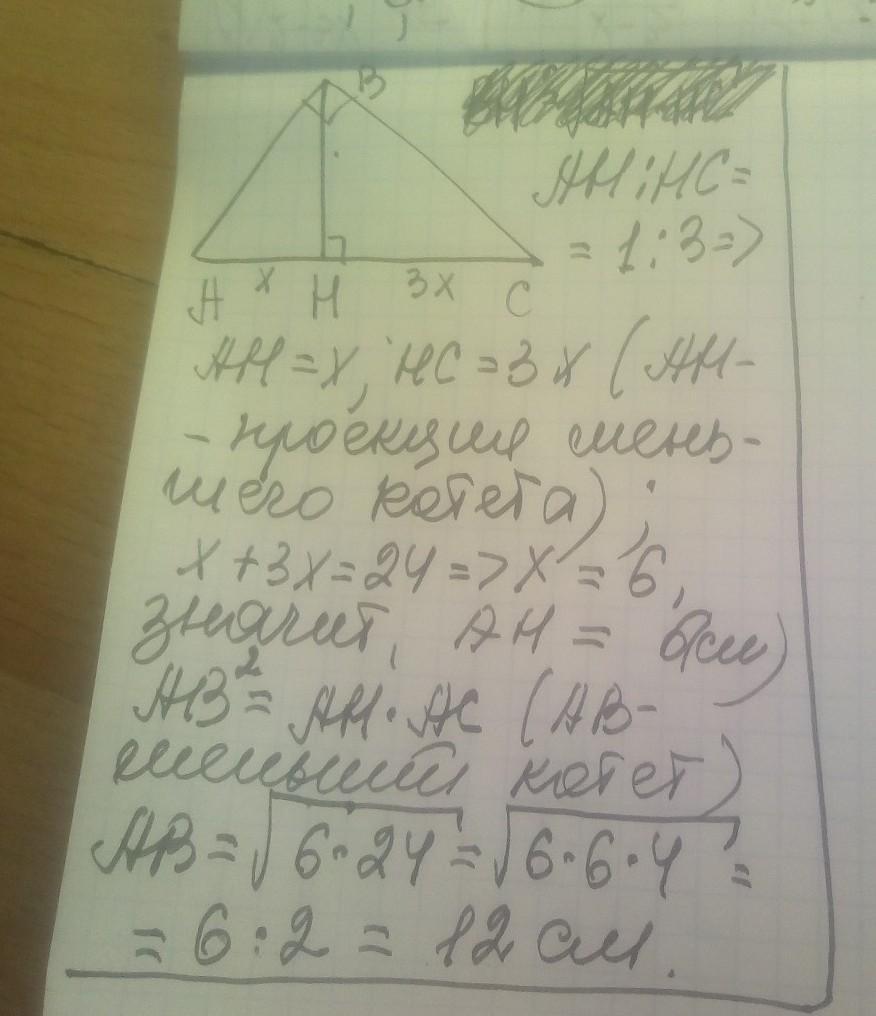 B
AH:HC=
= 1:3 =>
x 3x
A H C
AH = x, HC = 3x (AH-
- проекция мень-
шего катета);
x + 3x = 24 => x = 6,
значит, AH = 6(см)
AB² = AH·AC (AB-
меньший катет)
AB = √6·24 = √6·6·4 =
= 6:2 = 12 см.